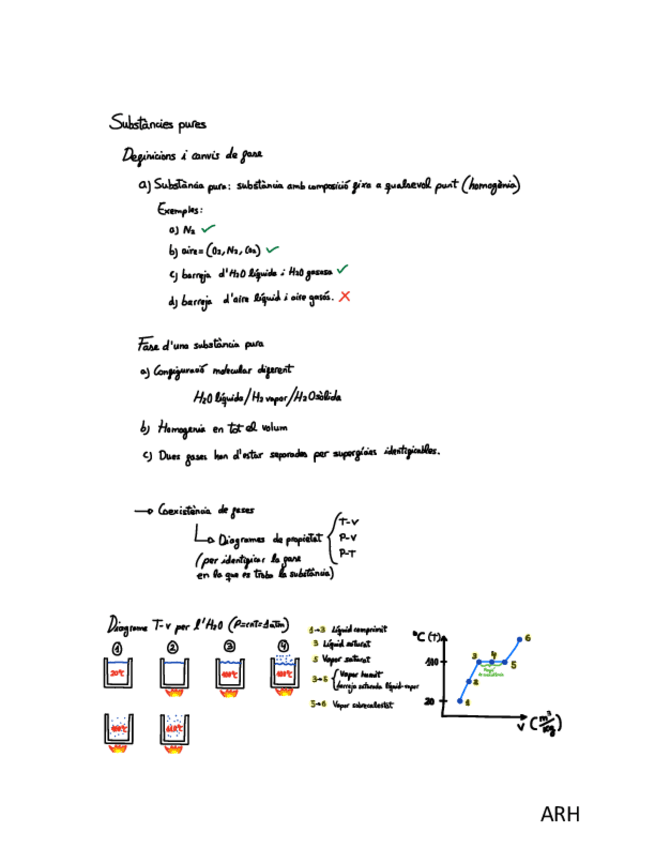 Substàncies pures
Definicions i canvis de fase
a) Substància pura: substància amb composició fixa a qualsevol punt (homogènia)
Exemples:
a) N₂ ✓
b) aire = (O₂, N₂, CO₂) ✓
c) barreja d'H₂O líquida i H₂O gasosa ✓
d) barreja d'aire líquid i aire gasós. ✗
Fase d'una substància pura
a) Configuració molecular diferent
H₂O líquida / H₂ vapor / H₂O sòlida
b) Homogenia en tot el volum
c) Dues fases han d'estar separades per superfícies identificables.
→ Coexistència de fases
Diagrames de propietat
T-v
P-v
P-T
(per identificar la fase
en la que es troba la substància)
Diagrama T-v per l'H₂O (P=cnt=1 atm)
1 2 3 4
20°C 100°C
1→3 Líquid comprimit
3 Líquid saturat
5 Vapor saturat
3→5 Vapor humit
barreja saturada líquid-vapor
5→6 Vapor sobrecalentat
°C (T)
100
20
1 2 3 4 5 6
v (m³/kg)
ARH